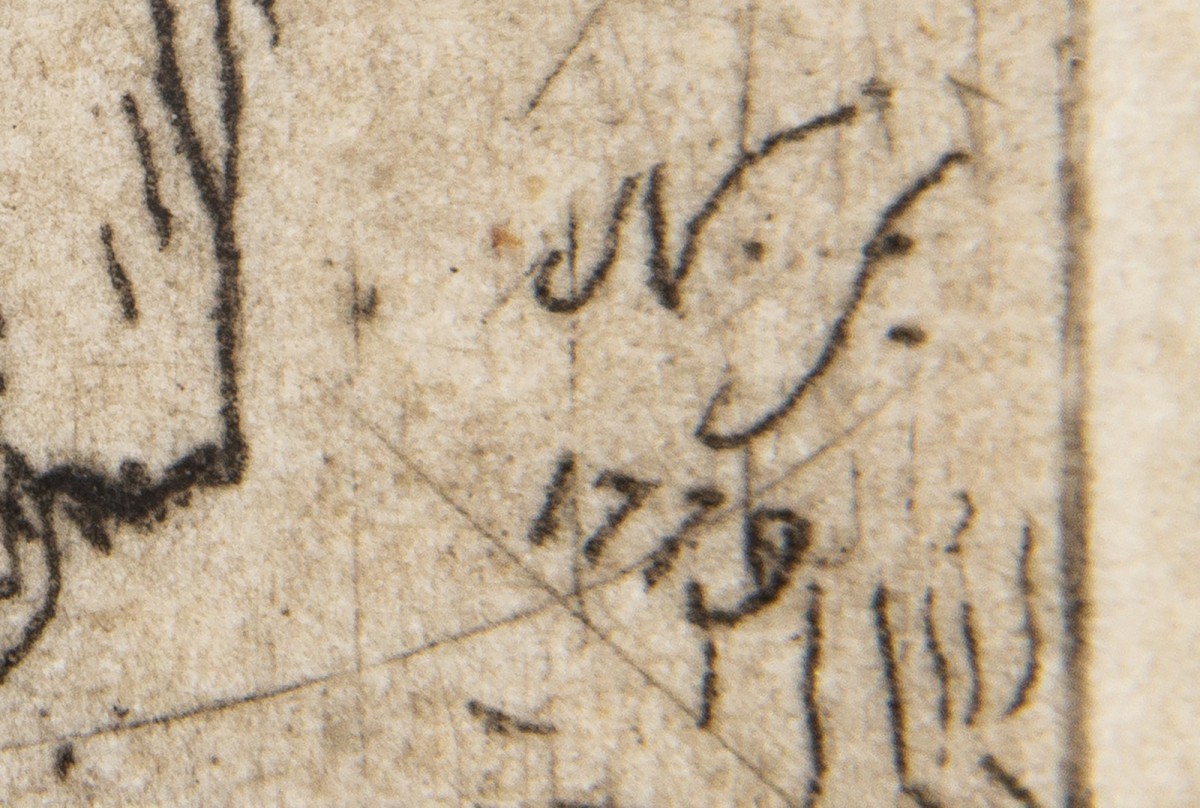 N. f.
1779